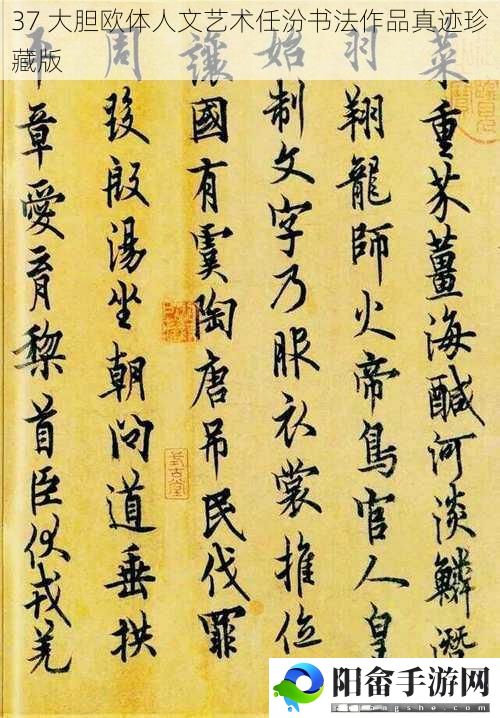 37 大胆欧体人文艺术任汾书法作品真迹珍
藏版
菜重芥薑海鹹河淡鱗潛
羽翔龍師火帝鳥官人皇
始制文字乃服衣裳推位
讓國有虞陶唐吊民伐罪
周發殷湯坐朝問道垂拱
平章愛育黎首臣伏戎羌
阳畲手游网